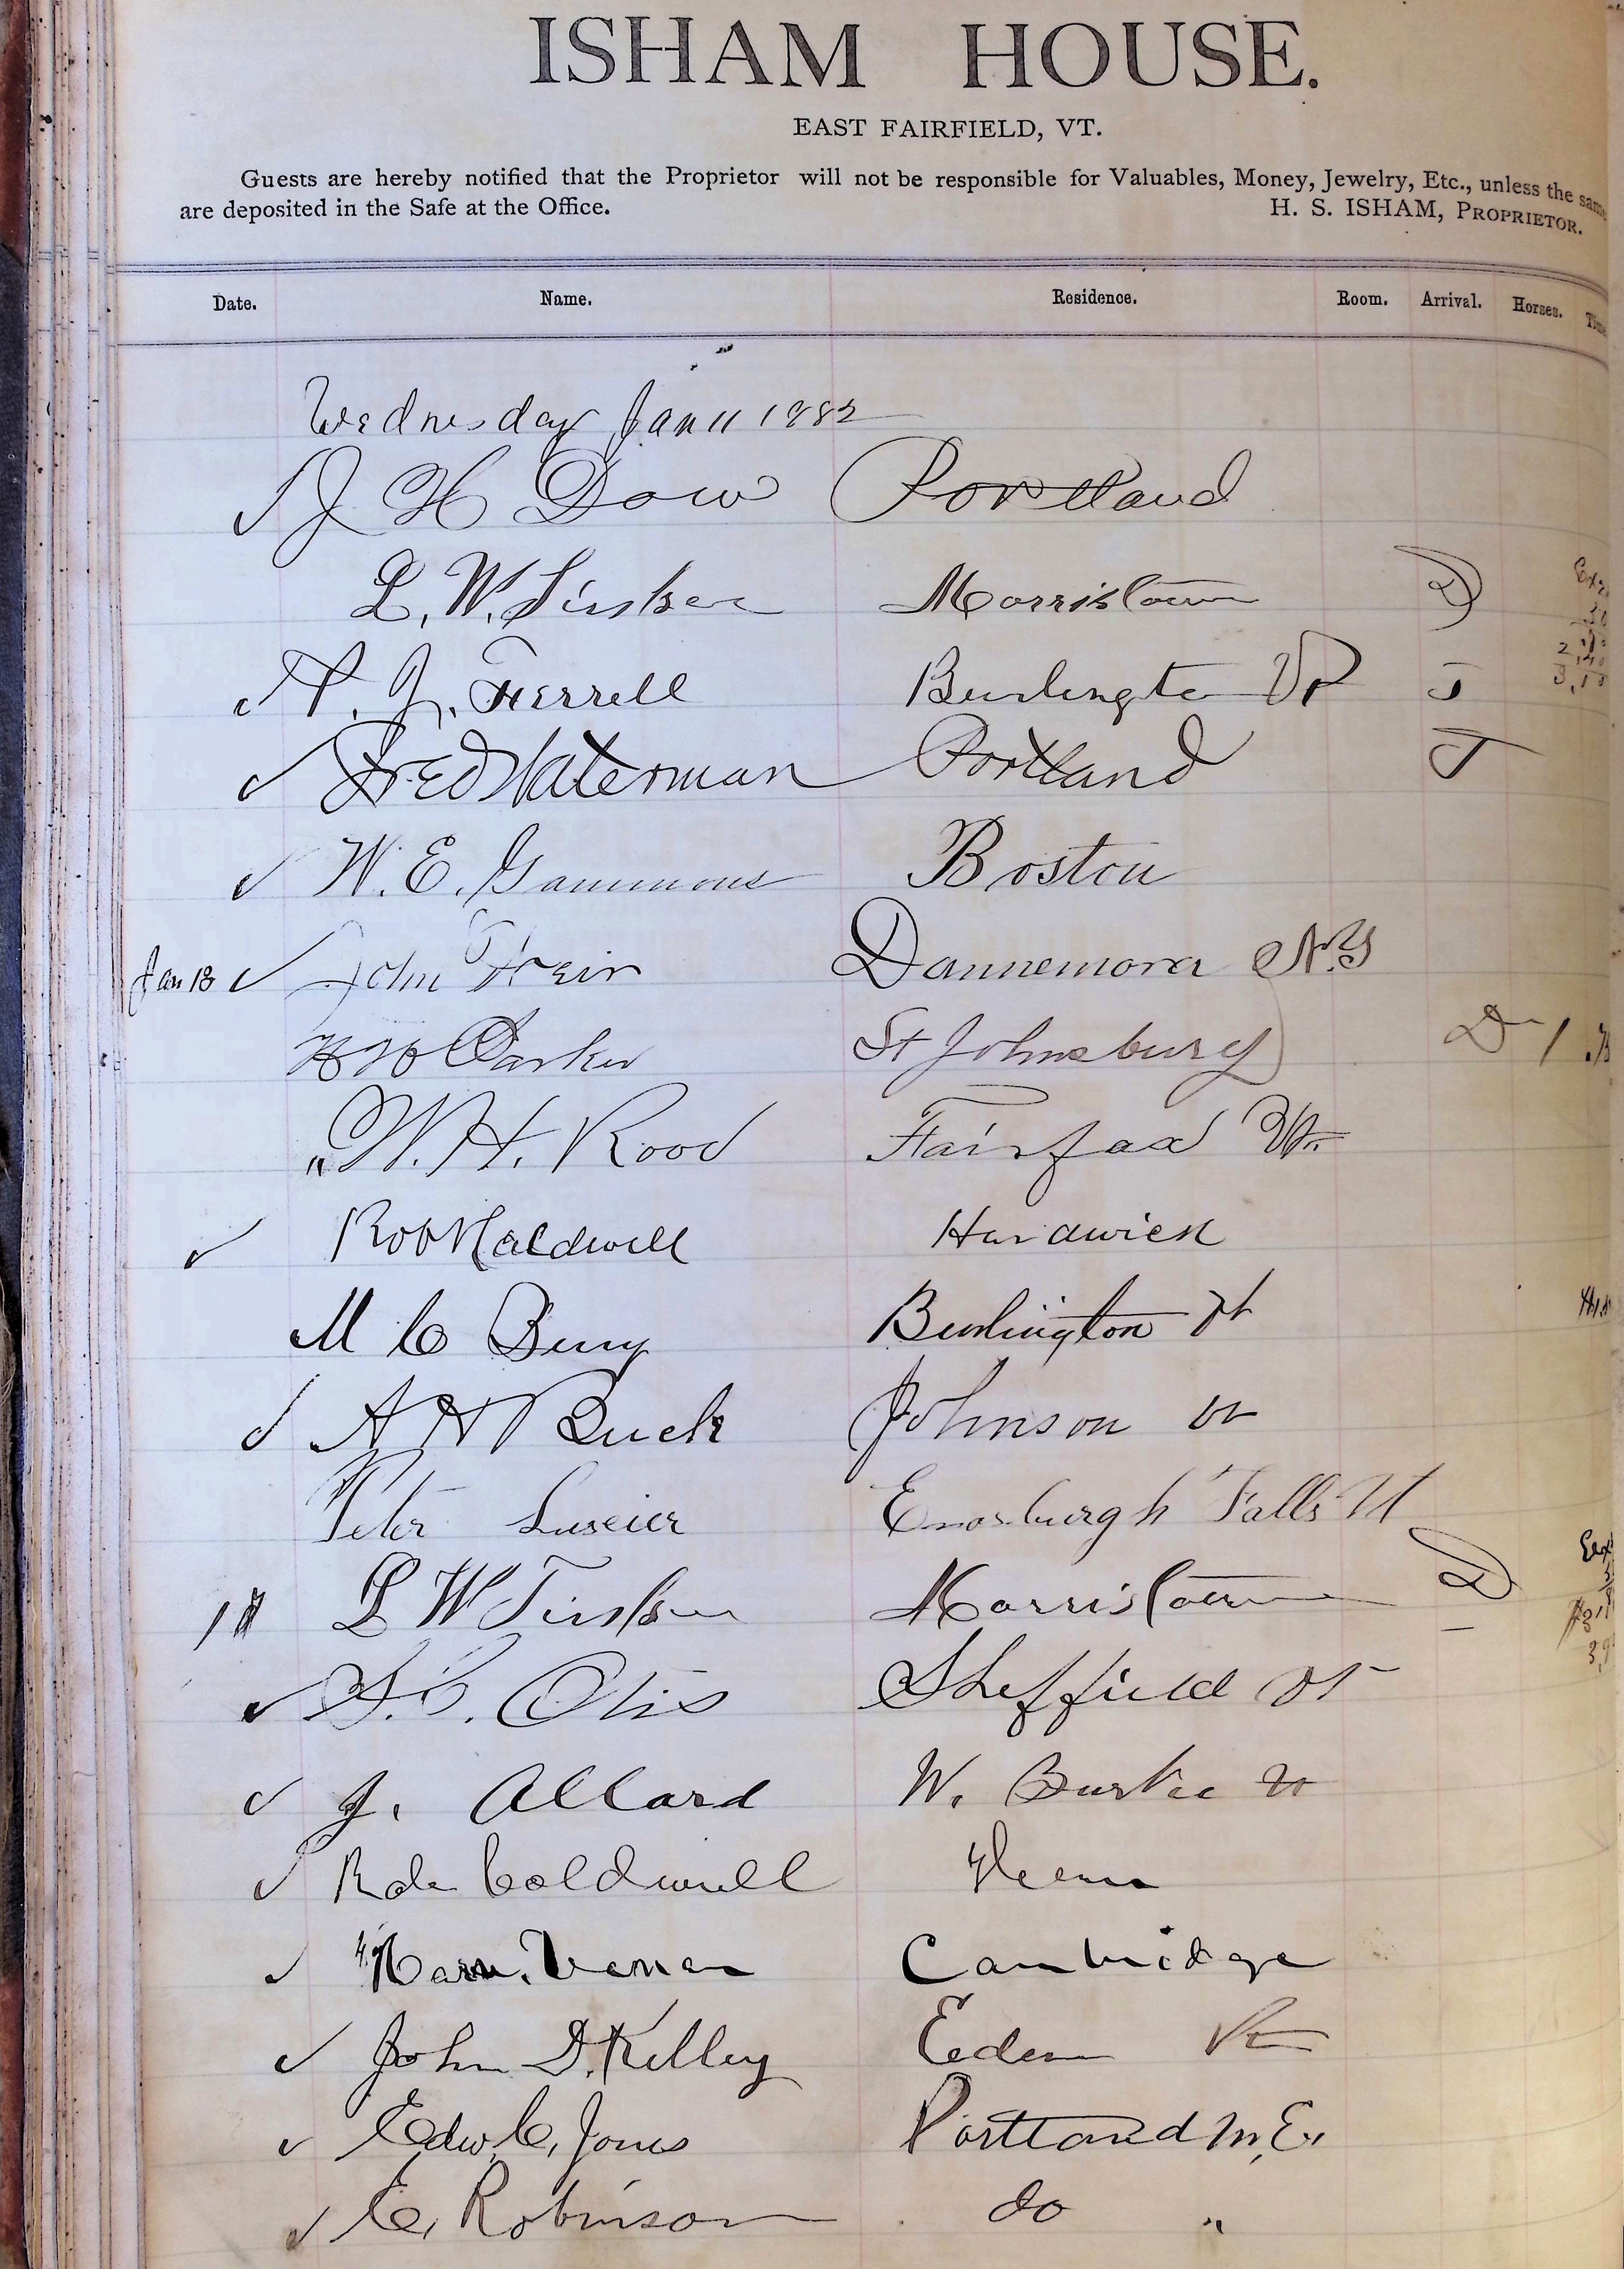 ISHAM HOUSE.
EAST FAIRFIELD, VT.
Guests are hereby notified that the Proprietor will not be responsible for Valuables, Money, Jewelry, Etc., unless the same
are deposited in the Safe at the Office. H. S. ISHAM, PROPRIETOR.
Date. Name. Residence. Room. Arrival. Horses. Time
Wednesday Jan 11 1882
J H Dow Portland
L. W. Morristown D
J. Ferrell Burlington Vt
Fred Waterman Portland T
W. E. Gammons Boston
Jan 13 John Dannemora N.Y
Parker St Johnsbury D 1
" W. H. Rood Fairfax Vt.
Rob Caldwell Hardwick
M C Berry Burlington Vt
A H Buck Johnson Vt
Peter Enosburgh Falls Vt
L W Morristown D
Otis Sheffield Vt
J. Allard W. Burke Vt
Robt Caldwell
Cambridge
John D. Kelley Eden Vt
Edw. C. Jones Portland M.E.
E. Robinson do "